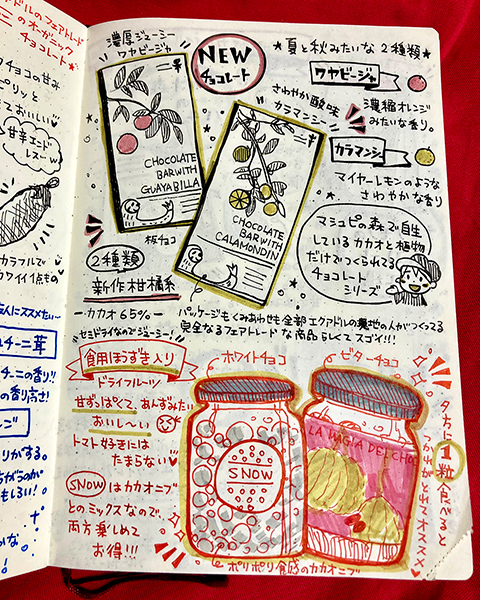 ドルのフェアトレード
このオーガニック
チョコレート★
チョコの甘み
ピリッと
ておいしい
甘辛エンド
レスー w
カラフルで
カワイイ1点もの
人にススメたい~
ルチーニ茸
チーニの香り!!
の香り高さ!
ンジ
りがする。
もしろい!
かな。
濃厚ジューシー
ワヤビージャ
NEW
チョコレート
★夏と秋みたいな2種類★
ワヤビージャ
濃縮オレンジ
みたいな香り。
さわやか酸味
カラマンシー
カラマンシー
マイヤーレモンのような
さわやかな香り
CHOCOLATE
BAR WITH
GUAYABILLA
CHOCOLATE
BAR WITH
CALAMONDIN
板チョコ
マシュピの森で自生
しているカカオと植物
だけでつくられてる
チョコレート
シリーズ
2種類
新作柑橘系
―カカオ65%―
パッケージもくみあわせも全部エクアドルの現地の人がつくってる
完全なるフェアトレードな商品らしくてスゴイ!!!
セミドライなのでジューシー!
食用ほうずき入り
ドライフルーツ
甘ずっぱくて、あんずみたい
おいし~い
トマト好きには
たまらない
SNOWはカカオニブ
とのミックスなので、
両方楽しめて
お得!!!
ホワイトチョコ
ビターチョコ
SNOW
LA MAGIA DEL CHO
ポリポリ食感のカカオニブ
夕方に1粒食べると
つかれがとれてオススメ